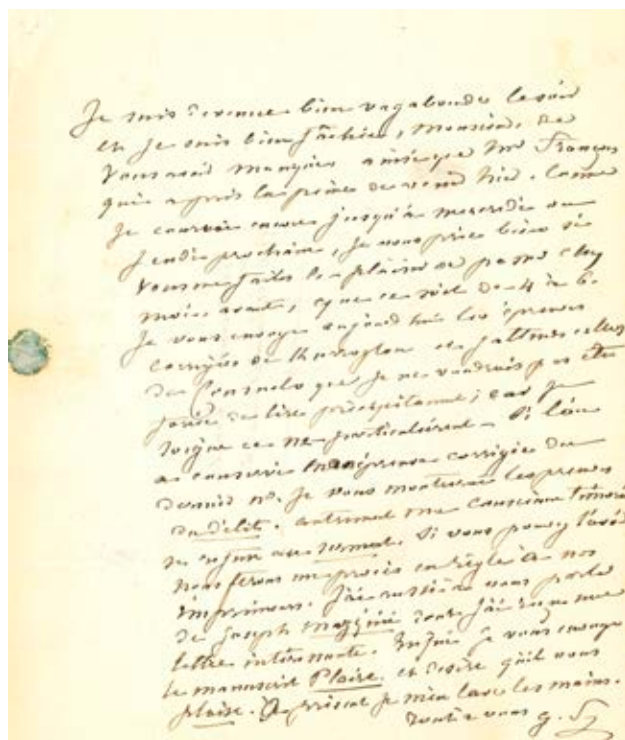 Je suis devenue bien vagabonde le soir
et je suis bien fâchée, Monsieur, de
vous avoir manqué ainsi que Mr François
qui a pris la peine de venir hier. Comme
je courrai encore jusqu'à mercredi ou
jeudi prochain, je vous prie bien si
vous me faites le plaisir de passer chez
moi avant, que ce soit de 4 à 6.
Je vous envoye aujourd'hui les épreuves
corrigées de Karroglou et j'attends celles
de Consuelo que je ne voudrais pas être
forcée de lire précipitamment; car je
soigne ce no particulièrement. Si l'on
a conservé épreuve corrigée du
dernier no. je vous montrerai les preuves
du délit. autrement ma conscience timorée
Si vous pouvez l'avoir
nous ferons un procès en règle à nos
imprimeurs. J'ai aussi à vous parler
de Joseph Mazzini dont j'ai reçu une
lettre intéressante. Enfin je vous envoye
le manuscrit Plaire. et désire qu'il vous
plaise. je m'en lave les mains.
Tout à vous G. S